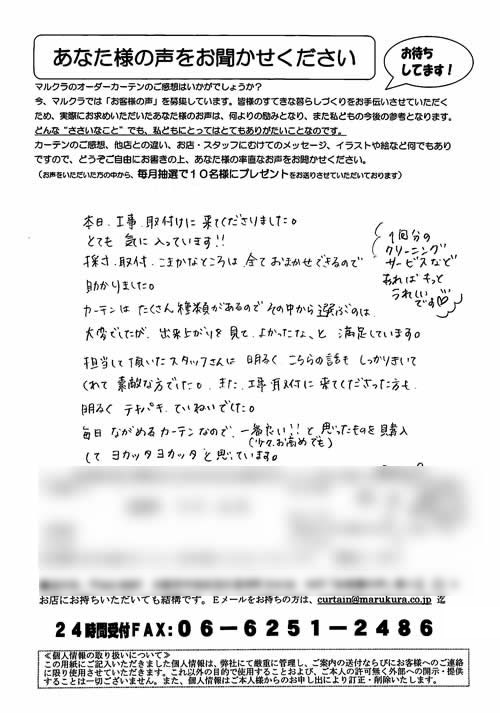 あなた様の声をお聞かせください
お待ち
してます！
マルクラのオーダーカーテンのご感想はいかがでしょうか？
今、マルクラでは「お客様の声」を募集しています。皆様のすてきな暮らしづくりをお手伝いさせていただく
ため、実際にお求めいただいたあなた様のお声は、何よりの励みとなり、また私どもの今後の参考となります。
どんな“ささいなこと”でも、私どもにとってはとてもありがたいことなのです。
カーテンのご感想、他店との違い、お店・スタッフにむけてのメッセージ、イラストや絵など何でもあり
ですので、どうぞご自由にお書きの上、あなた様の率直なお声をお聞かせください。
（お声をいただいた方の中から、毎月抽選で１０名様にプレゼントをお送りさせていただいております）
本日、工事、取付けに来てくださりました。
とても 気に入っています!!
採寸、取付、こまかなところは 全ておまかせできるので
助かりました。
カーテンは たくさん種類があるので その中から 選ぶのは
大変でしたが、出来上がりを見て、よかったな、と 満足しています。
担当して頂いたスタッフさんは 明るく こちらの話も しっかりきいて
くれて 素敵な方でした。また、工事・取付に来てくださった方も、
明るく テキパキ、ていねいでした。
毎日 ながめるカーテンなので、一番たい!! と 思ったものを 購入
(少々、お高めでも)
して ヨカッタ ヨカッタ と思っています。
1回分の
クリーニング
サービスなど
あれば もっと
うれしい
です♡
お店にお持ちいただいても結構です。Ｅメールをお持ちの方は、curtain@marukura.co.jp 迄
２４時間受付ＦＡＸ：０６－６２５１－２４８６
≪個人情報の取り扱いについて≫
この用紙にご記入いただきました個人情報は、弊社にて厳重に管理し、ご案内の送付ならびにお客様へのご連絡
に限り使用させていただきます。これ以外の目的で使用することおよび、ご本人の許可無く外部への開示・提供
することは一切ございません。また、個人情報はご本人様からのお申し出により訂正・削除いたします。